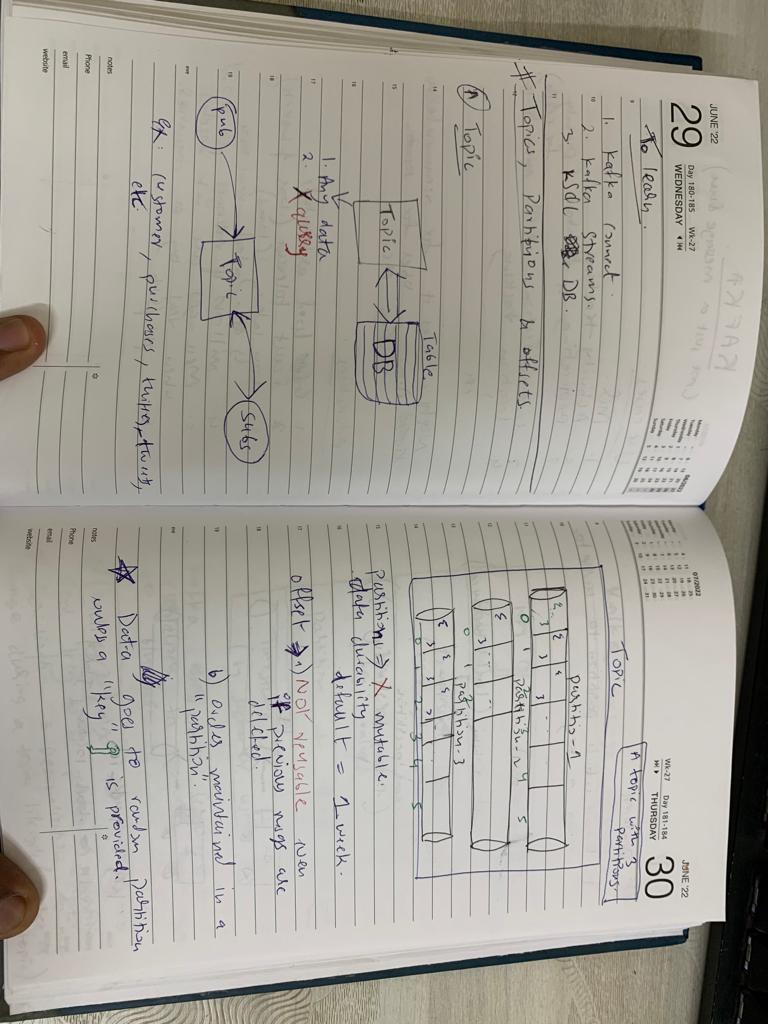 JUNE '22
29
Day 180-185 Wk-27
WEDNESDAY
To learn.
1. Kafka connect
2. Kafka Streams.
3. KSQL DB.
# Topics, Partitions & offsets.
A Topic
Table
Topic
DB
1. Any data
2. X query
pub
Topic
Subs
Ex: customer, purchases, tweets,
etc.
notes
Phone
email
website
07/2022
JUNE '22
Wk-27 Day 181-184
THURSDAY
30
A topic with 3
partitions.
Topic
partition-1
0 1 2 3 4 5
partition-2
0 1 2
partition-3
0 1 2 3 4 5
partitions => X mutable.
data durability
default = 1 week.
offset => 1) NOT reusable even
if previous msgs are
deleted.
b) order maintained in a
"partition".
Data goes to random partition
unless a "key" is provided.
notes
Phone
email
website